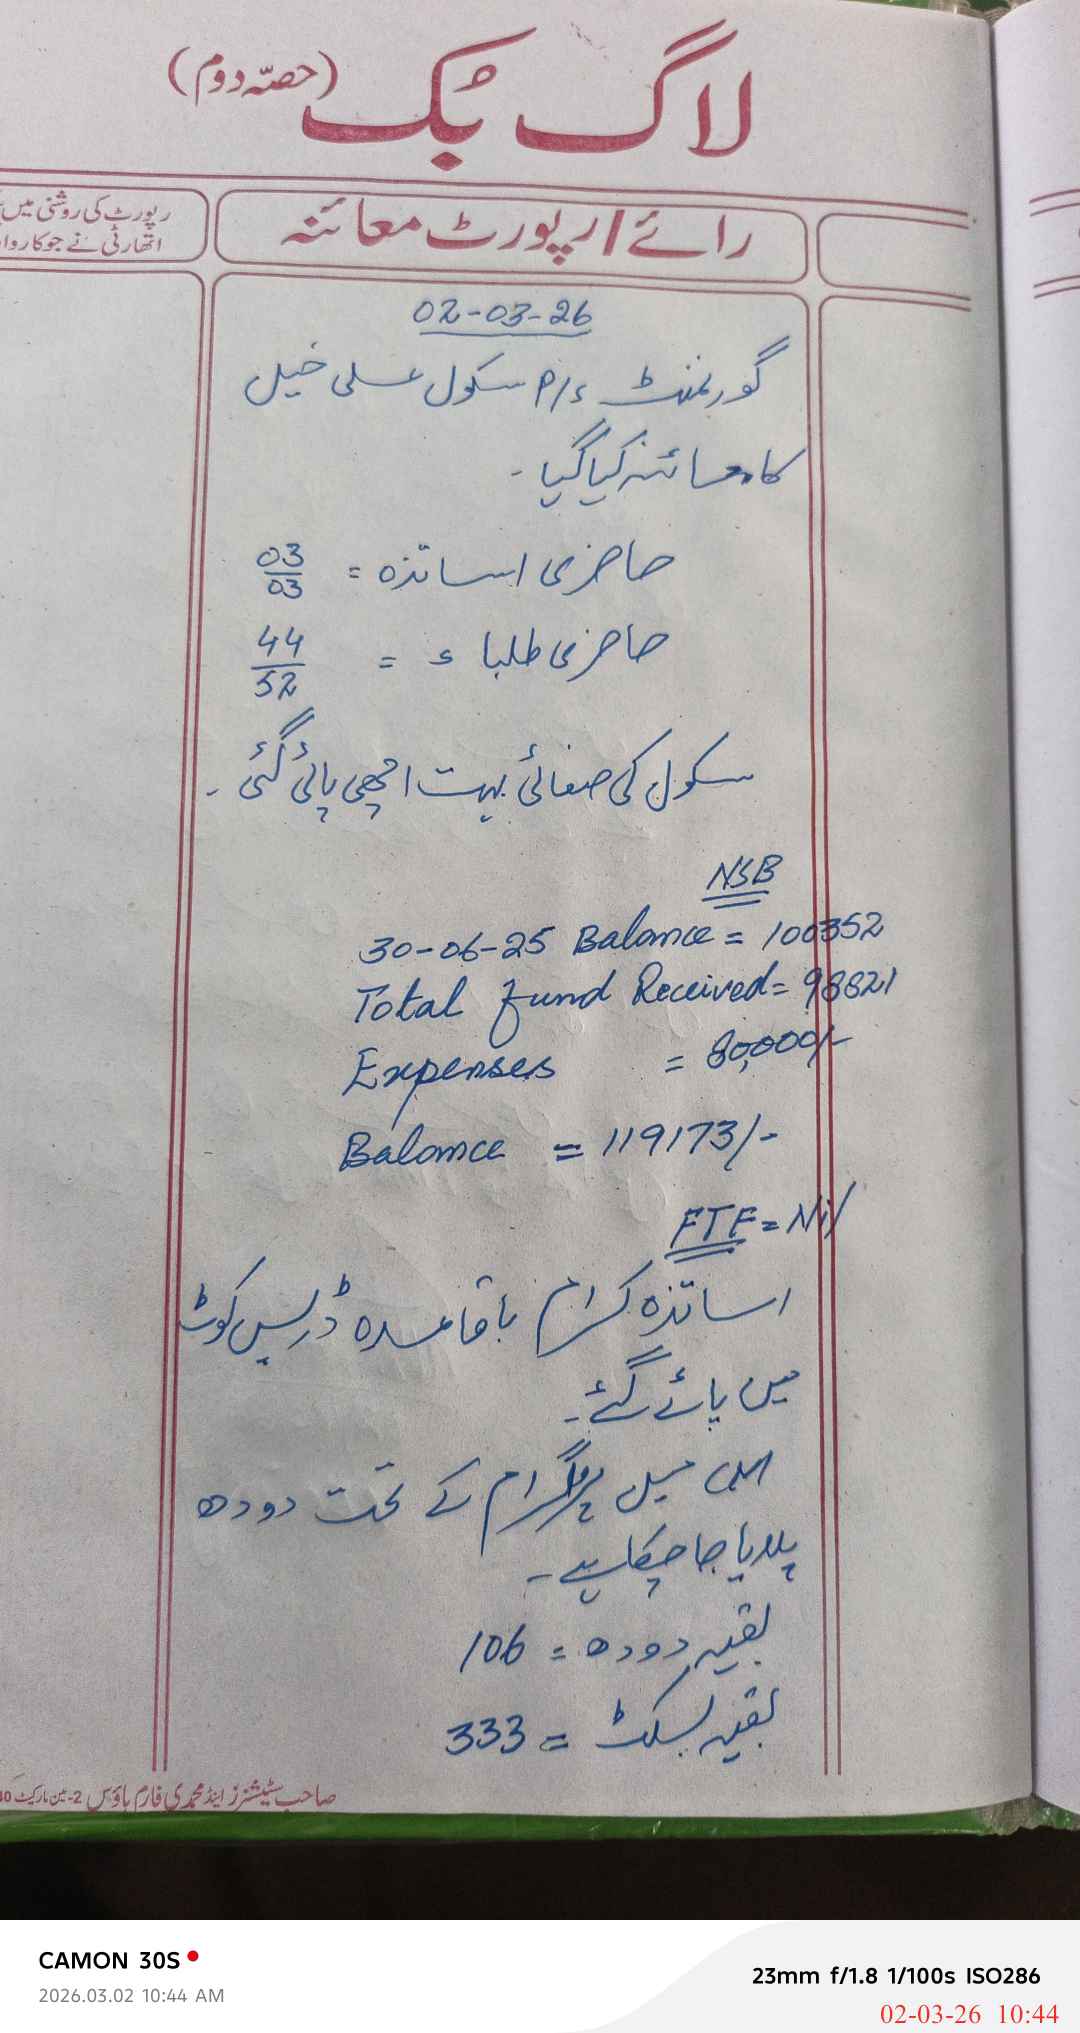 لاگ بک (حصّہ دوم)
رائے/رپورٹ معائنہ
رپورٹ کی روشنی میں
اتھارٹی نے جو کاروا
02-03-26
گورنمنٹ P/S سکول علی خیل
کا معائنہ کیا گیا۔
حاضری اساتذہ = 03/03
حاضری طلباء = 44/52
سکول کی صفائی بہت اچھی پائی گئی۔
NSB
30-06-25 Balance = 100352
Total fund Received = 98821
Expenses = 80,000/-
Balance = 119173/-
FTF = Nil
اساتذہ کرام باقاعدہ ڈریس کوٹ
میں پائے گئے۔
میل پروگرام کے تحت دودھ
پلایا جا چکا ہے۔
بقیہ دودھ = 106
بقیہ بسکٹ = 333
صاحب سٹیشنرز اینڈ محمدی فارم ہاؤس 2-مین مارکیٹ
CAMON 30S
2026.03.02 10:44 AM
23mm f/1.8 1/100s ISO286
02-03-26 10:44